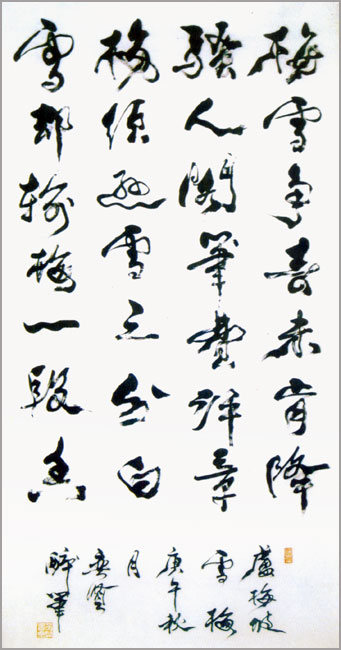 梅雪争春未肯降
騷人閣筆費評章
梅須遜雪三分白
雪却輸梅一段香
盧梅坡
雪梅
庚午秋
月
醉筆